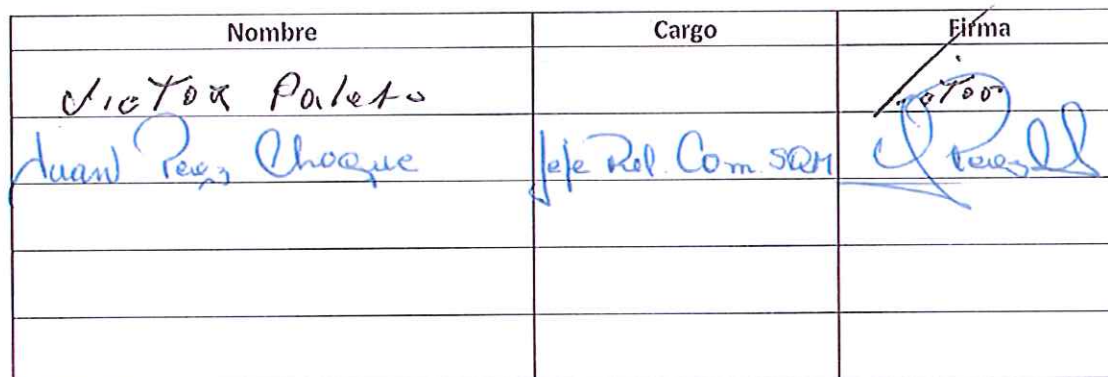 Nombre Cargo Firma
Victor Paleto
Juan Perez Choque Jefe Rel. Com. SQM Perez